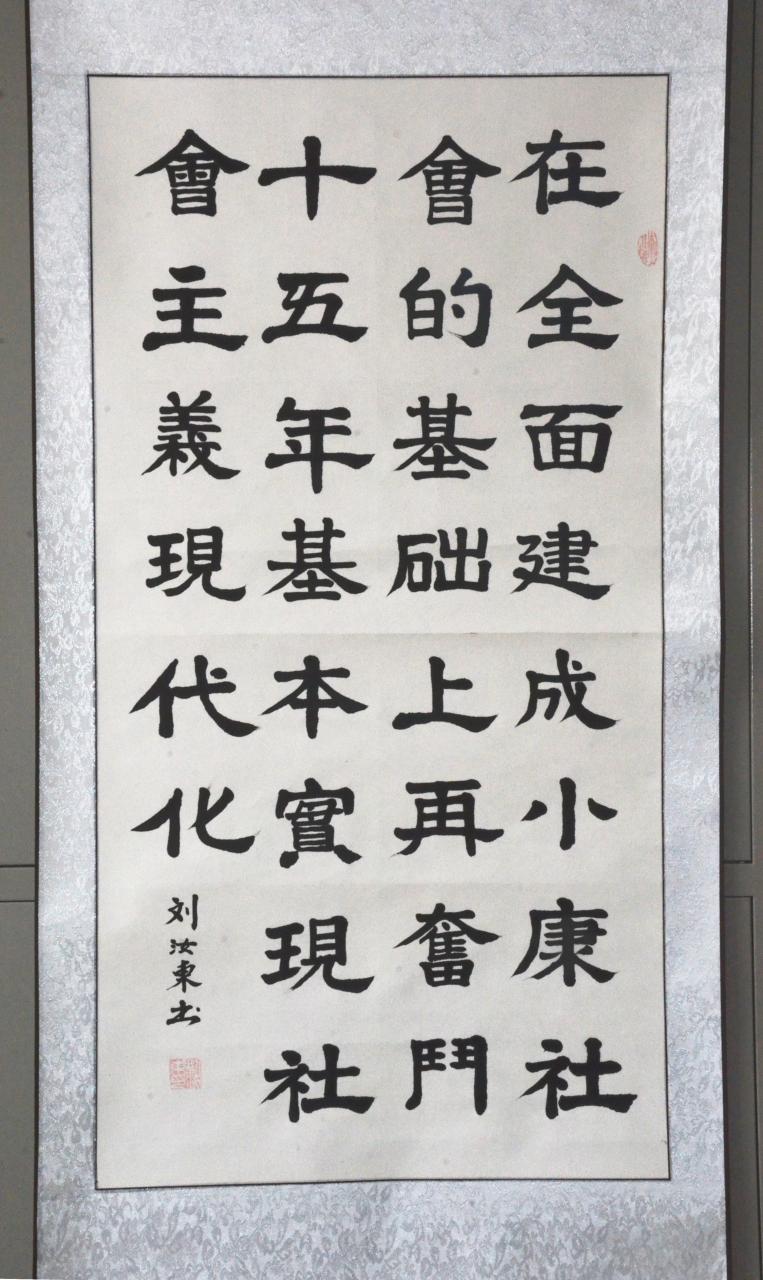 在全面建成小康社
會的基础上再奮鬥
十五年基本實現社
會主義現代化
刘汝東书